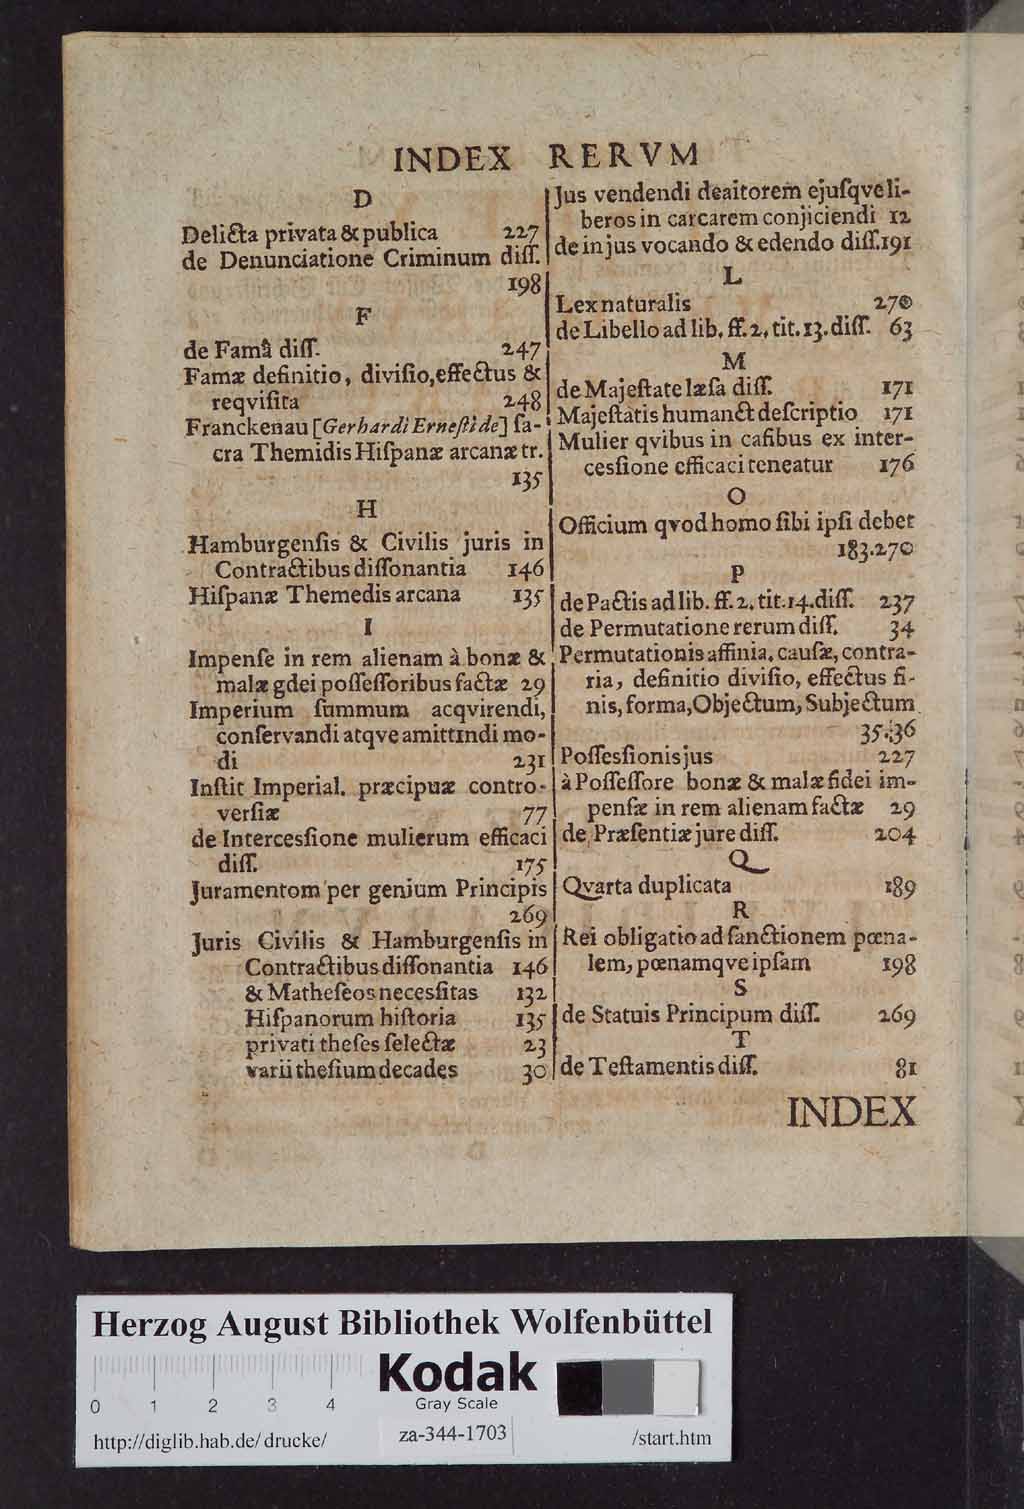 INDEX RERVM
D
Delicta privata & publica 227
de Denunciatione Criminum diſſ.
198
F
de Famâ diſſ. 247
Famæ definitio, diviſio, effectus &
reqviſita 248
Franckenau [Gerhardi Erneſti de] ſa-
cra Themidis Hiſpanæ arcanæ tr.
135
H
Hamburgenſis & Civilis juris in
Contractibus diſſonantia 146
Hiſpanæ Themedis arcana 135
I
Impenſe in rem alienam à bonæ &
malæ gdei poſſeſſoribus factæ 29
Imperium ſummum acqvirendi,
conſervandi atqve amittındi mo-
di 231
Inſtit Imperial. præcipuæ contro-
verſiæ 77
de Interceſſione mulierum efficaci
diſſ. 175
Juramentom per genium Principis
269
Juris Civilis & Hamburgenſis in
Contractibus diſſonantia 146
& Matheſeos neceſſitas 132
Hiſpanorum hiſtoria 135
privati theſes ſelectæ 23
varii theſium decades 30
Jus vendendi deaitorem ejuſqve li-
beros in carcarem conjiciendi 12
de in jus vocando & edendo diſſ. 191
L
Lex naturalis 270
de Libello ad lib. ff. 2. tit. 13. diſſ. 63
M
de Majeſtate læſa diſſ. 171
Majeſtatis humanct deſcriptio 171
Mulier qvibus in caſibus ex inter-
ceſſione efficaci teneatur 176
O
Officium qvod homo ſibi ipſi debet
183. 270
P
de Pactis ad lib. ff. 2. tit. 14. diſſ. 237
de Permutatione rerum diſſ. 34
Permutationis affinia, cauſæ, contra-
ria, definitio diviſio, effectus fi-
nis, forma, Objectum, Subjectum
35. 36
Poſſesſionis jus 227
à Poſſeſſore bonæ & malæ fidei im-
penſæ in rem alienam factæ 29
de Præſentiæ jure diſſ. 204
Q
Qvarta duplicata 189
R
Rei obligatio ad ſanctionem pœna-
lem, pœnamqve ipſam 198
S
de Statuis Principum diſſ. 269
T
de Teſtamentis diſſ. 81
INDEX
Herzog August Bibliothek Wolfenbüttel
Kodak
Gray Scale
0 1 2 3 4
http://diglib.hab.de/drucke/ za-344-1703 /start.htm